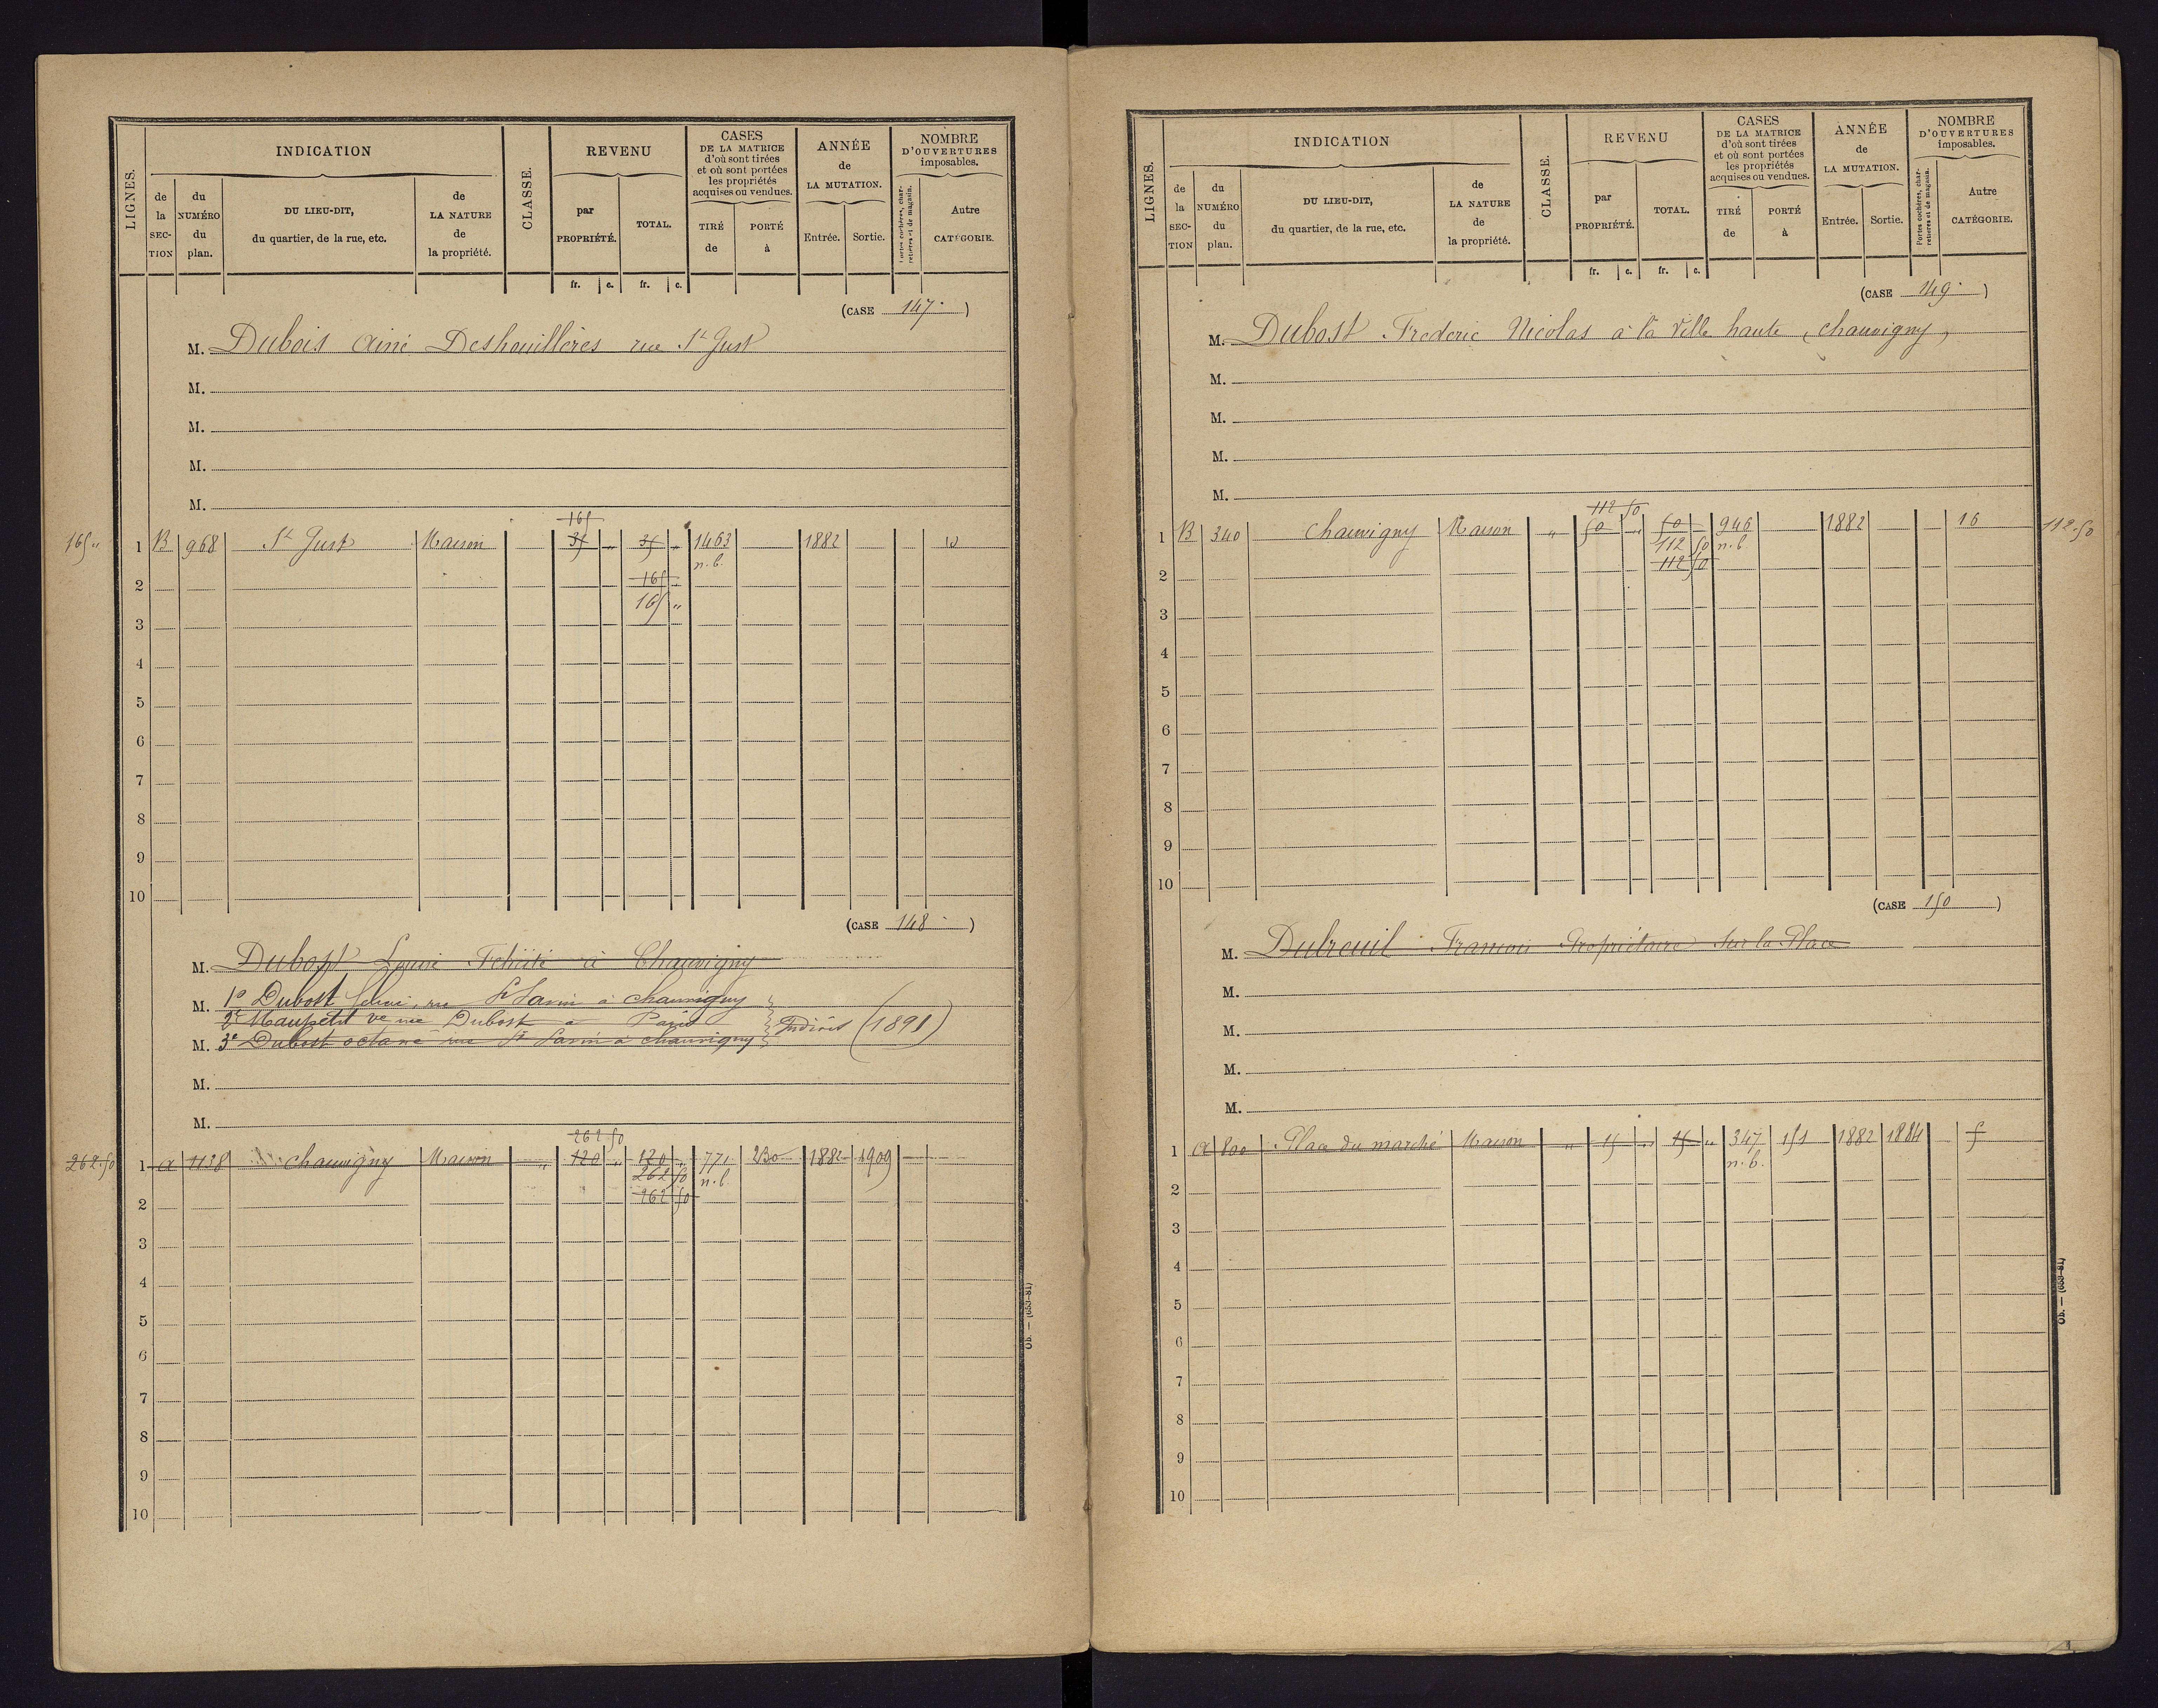 LIGNES.
INDICATION
de la SECTION
du NUMÉRO du plan.
DU LIEU-DIT, du quartier, de la rue, etc.
de LA NATURE de la propriété.
CLASSE.
REVENU
par PROPRIÉTÉ.
TOTAL.
fr. c. fr. c.
CASES DE LA MATRICE d'où sont tirées et où sont portées les propriétés acquises ou vendues.
TIRÉ de
PORTÉ à
ANNÉE de LA MUTATION.
Entrée. Sortie.
NOMBRE D'OUVERTURES imposables.
Portes cochères, charretières et de magasin.
Autre CATÉGORIE.
(CASE 147.)
M. Dubois ainé Deshouillères rue St Just
M.
M.
M.
M.
165
165 " 1 B 968 St Just Maison 35 " 35 " 1463 1882 10
n.b.
2 165 "
165 "
3
4
5
6
7
8
9
10
(CASE 148.)
M. Dubost Louise Félicité à Chauvigny
M. 1º Dubost rue St Savin à chauvigny
2º Maupetit ve née Dubost à Paris Indivis (1891)
M. 3º Dubost octave rue St Savin à chauvigny
M.
M.
262 50
262.50 1 a 1138 chauvigny Maison " 120 " 120 " 771 230 1882 1909
262 50 n.b.
2 262 50
3
4
5
6
7
8
9
10
Ob. — (653-81)
LIGNES.
INDICATION
de la SECTION
du NUMÉRO du plan.
DU LIEU-DIT, du quartier, de la rue, etc.
de LA NATURE de la propriété.
CLASSE.
REVENU
par PROPRIÉTÉ.
TOTAL.
fr. c. fr. c.
CASES DE LA MATRICE d'où sont tirées et où sont portées les propriétés acquises ou vendues.
TIRÉ de
PORTÉ à
ANNÉE de LA MUTATION.
Entrée. Sortie.
NOMBRE D'OUVERTURES imposables.
Portes cochères, charretières et de magasin.
Autre CATÉGORIE.
(CASE 149.)
M. Dubost Frederic Nicolas à la Ville haute (chauvigny)
M.
M.
M.
M.
112 50
1 B 340 chauvigny Maison " 50 " 50 946 1882 16 112.50
112 50 n.b
2 112 50
3
4
5
6
7
8
9
10
(CASE 150)
M. Dubreuil François Propriétaire Sur la Place
M.
M.
M.
M.
1 a 800 Place du marché Maison " 15 " 15 " 347 151 1882 1884 5
n.b.
2
3
4
5
6
7
8
9
10
Ob. — (653-81)